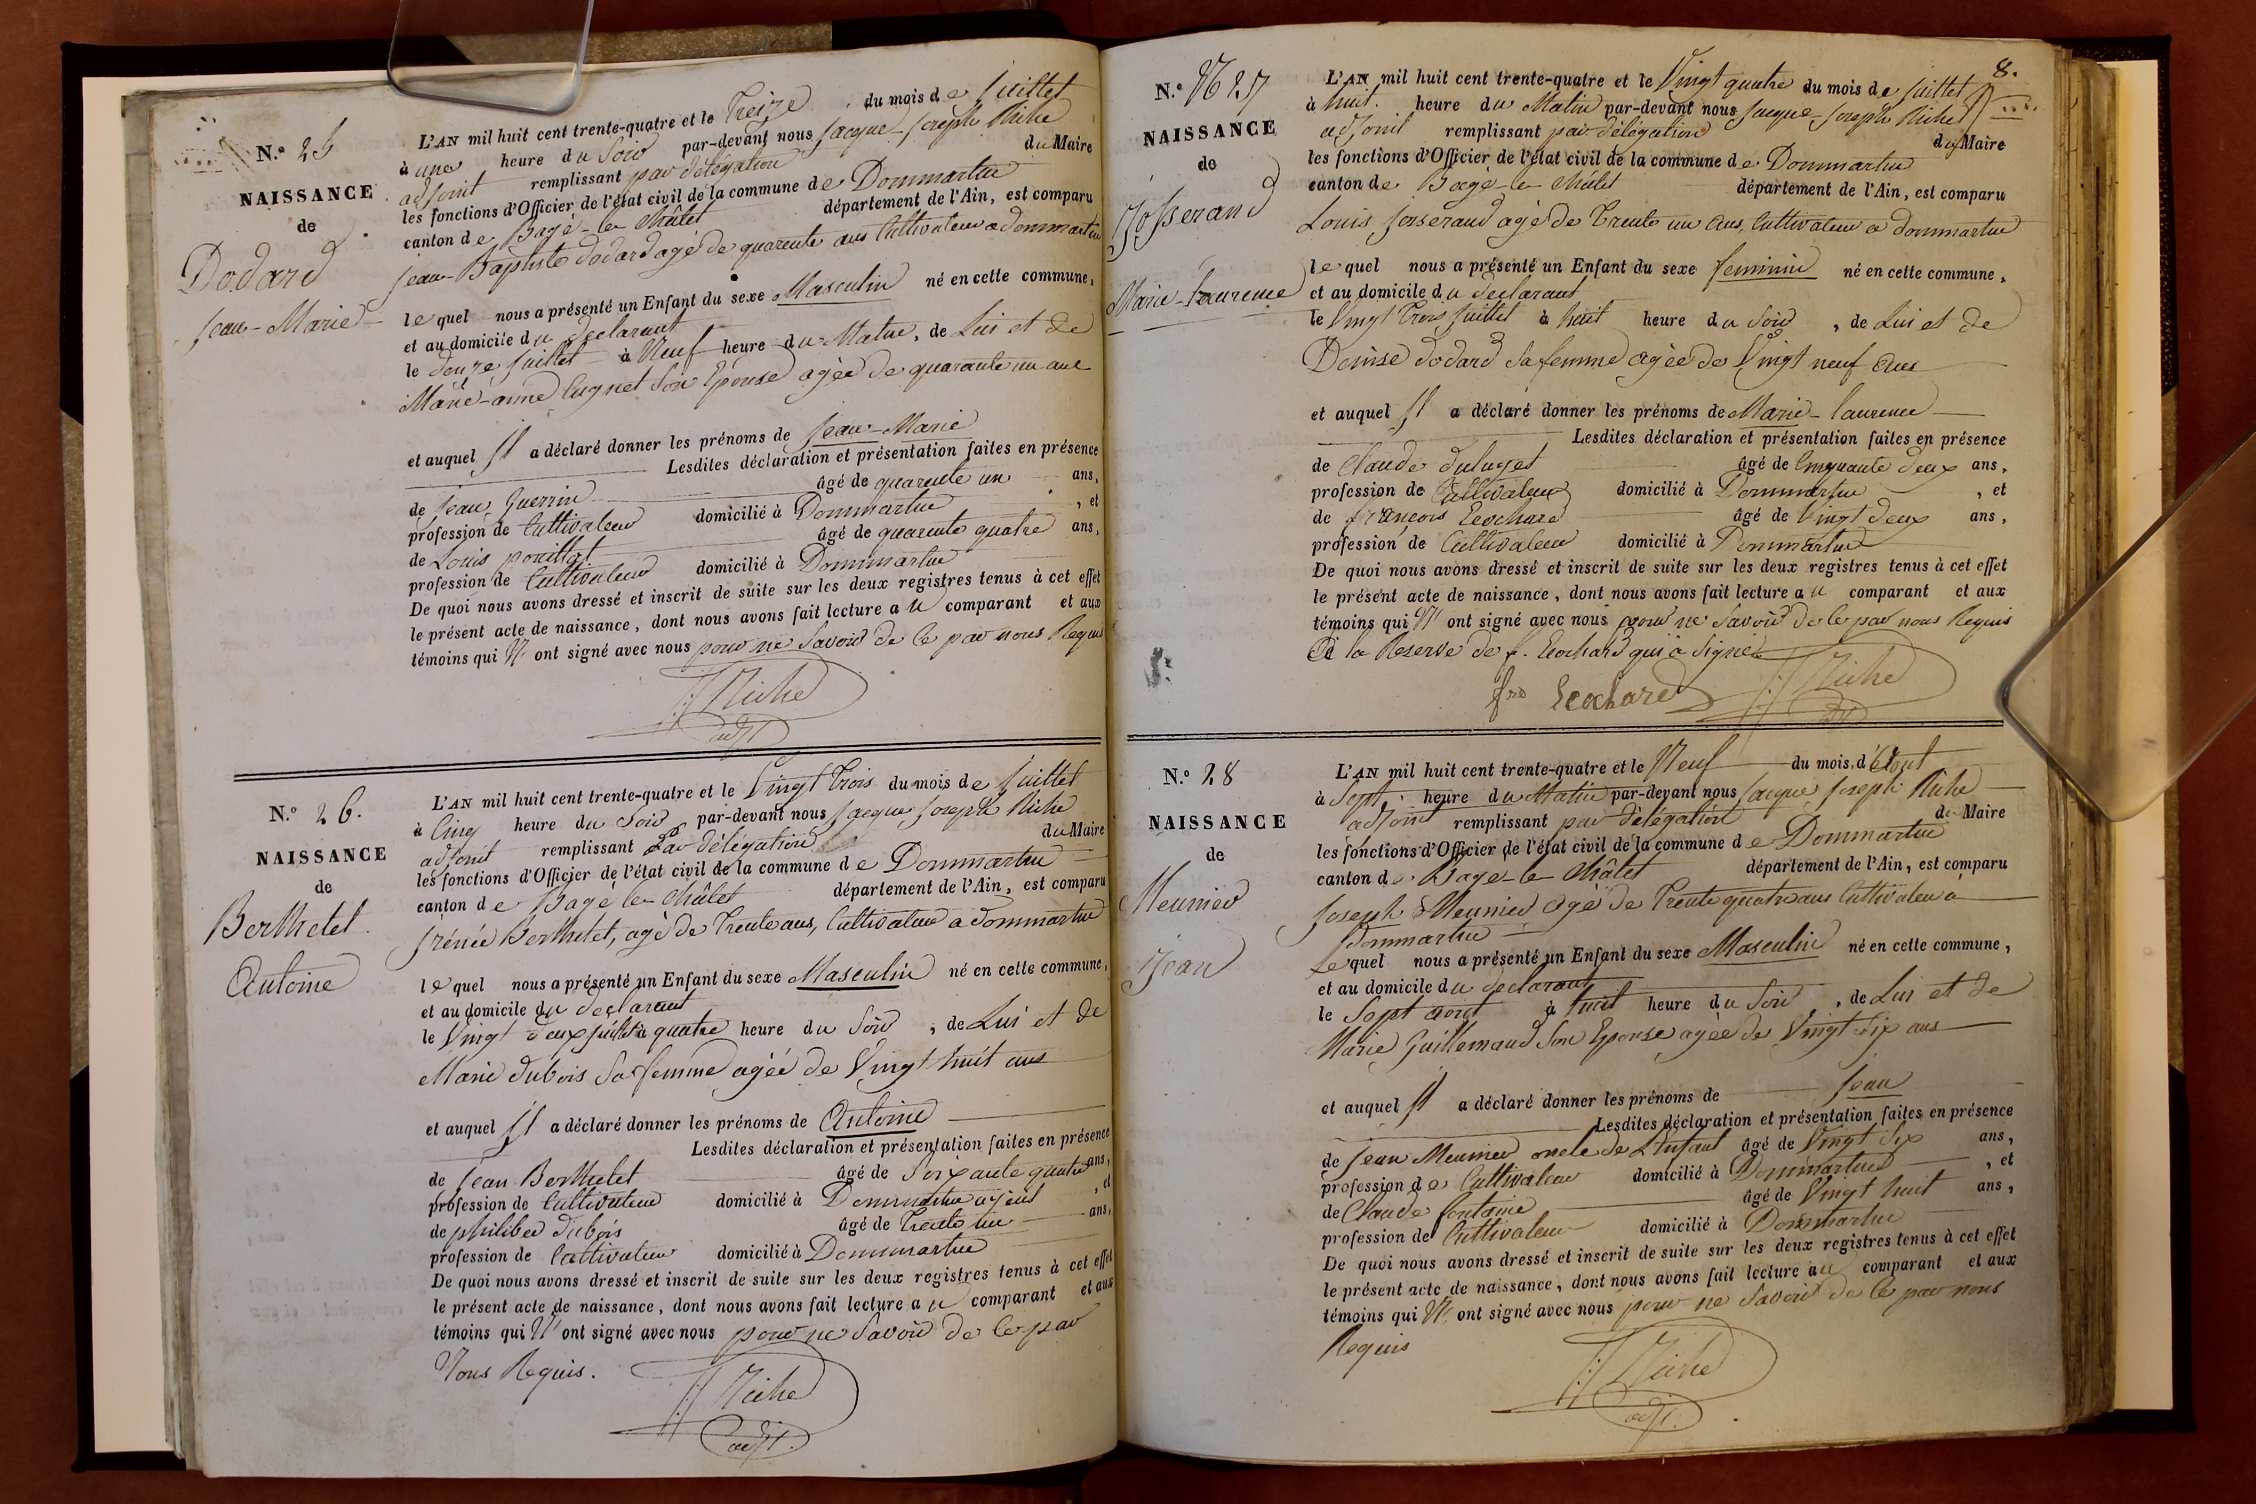 N.° 25
NAISSANCE
de
Dodard
Jean-Marie
L'AN mil huit cent trente-quatre et le Treize du mois de juillet
à une heure du Soir par-devant nous Jacque-Joseph Riche
adjoint remplissant par délégation du Maire
les fonctions d'Officier de l'état civil de la commune de Dommartin
canton de Bagé-le-Châtel département de l'Ain, est comparu
Jean-Baptiste dodard agé de quarente ans Cultivateur a dommartin
lequel nous a présenté un Enfant du sexe Masculin né en cette commune,
et au domicile du declarant
le douze juillet à Neuf heure du Matin, de Lui et de
Marie-anne Cugnet Son Epouse agée de quarante un ans
et auquel Il a déclaré donner les prénoms de Jean-Marie
Lesdites déclaration et présentation faites en présence
de Jean Guerrin âgé de quarente un ans,
profession de Cultivateur domicilié à Dommartin, et
de Louis pouillat âgé de quarente quatre ans,
profession de Cultivateur domicilié à Dommartin
De quoi nous avons dressé et inscrit de suite sur les deux registres tenus à cet effet
le présent acte de naissance, dont nous avons fait lecture au comparant et aux
témoins qui N' ont signé avec nous pour ne Savoir de ce par nous Requis
JJ Riche
adjt
N.° 26.
NAISSANCE
de
Berthelet.
Antoine
L'AN mil huit cent trente-quatre et le Vingt Trois du mois de juillet
à Cinq heure du Soir par-devant nous Jacque Joseph Riche
adjoint remplissant Par délégation du Maire
les fonctions d'Officier de l'état civil de la commune de Dommartin
canton de Bagé le-Châtel département de l'Ain, est comparu
Irénée Berthelet, agé de Trente ans, Cultivateur a dommartin
lequel nous a présenté un Enfant du sexe Masculin né en cette commune,
et au domicile du declarant
le Vingt deux juillet à quatre heure du Soir, de Lui et de
Marie dubois Sa femme agée de Vingt huit ans
et auquel Il a déclaré donner les prénoms de Antoine
Lesdites déclaration et présentation faites en présence
de Jean Berthelet âgé de Soixante quatre ans,
profession de Cultivateur domicilié à Dommartin ayeul, et
de philiber dubois âgé de Trente un ans,
profession de Cultivateur domicilié à Dommartin
De quoi nous avons dressé et inscrit de suite sur les deux registres tenus à cet effet
le présent acte de naissance, dont nous avons fait lecture au comparant et aux
témoins qui N' ont signé avec nous pour ne Savoir de ce par
Nous Requis.
JJ Riche
adjt.
8.
N.° 27
NAISSANCE
de
Josserand
Marie-Laurence
L'AN mil huit cent trente-quatre et le Vingt quatre du mois de juillet
à huit. heure du Matin par-devant nous Jacque-Joseph Riche
adjoint remplissant par délégation du Maire
les fonctions d'Officier de l'état civil de la commune de Dommartin
canton de Bagé-le Châtel département de l'Ain, est comparu
Louis Josserand agé de Trente un ans, Cultivateur a dommartin
lequel nous a présenté un Enfant du sexe feminin né en cette commune,
et au domicile du declarant
le Vingt Trois juillet à huit heure du Soir, de Lui et de
Denise dodard Sa femme agée de Vingt neuf ans
et auquel Il a déclaré donner les prénoms de Marie-laurence
Lesdites déclaration et présentation faites en présence
de Claude âgé de Cinquante deux ans,
profession de Cultivateur domicilié à Dommartin, et
de françois Ecochard âgé de Vingt deux ans,
profession de Cultivateur domicilié à Dommartin
De quoi nous avons dressé et inscrit de suite sur les deux registres tenus à cet effet
le présent acte de naissance, dont nous avons fait lecture au comparant et aux
témoins qui N' ont signé avec nous pour ne Savoir de ce par nous Requis
à la Reserve de f. Ecochard qui a Signé
frs Ecochard JJ Riche
adjt
N.° 28
NAISSANCE
de
Meunier
Jean
L'AN mil huit cent trente-quatre et le Neuf du mois d'Aout
à Sept. heure du Matin par-devant nous Jacque Joseph Riche
adjoint remplissant par délégation du Maire
les fonctions d'Officier de l'état civil de la commune de Dommartin
canton de Bagé-le Châtel département de l'Ain, est comparu
Joseph Meunier agé de Trente quatre ans Cultivateur a
Dommartin
Lequel nous a présenté un Enfant du sexe Masculin né en cette commune,
et au domicile du declarant
le Sept aout à huit heure du Soir, de Lui et de
Marie Guillemaud Son Epouse agée de Vingt Six ans
et auquel Il a déclaré donner les prénoms de Jean
Lesdites déclaration et présentation faites en présence
de Jean Meunier oncle de L'enfant âgé de Vingt Six ans,
profession de Cultivateur domicilié à Dommartin, et
de Claude fontaine âgé de Vingt huit ans,
profession de Cultivateur domicilié à Dommartin
De quoi nous avons dressé et inscrit de suite sur les deux registres tenus à cet effet
le présent acte de naissance, dont nous avons fait lecture au comparant et aux
témoins qui N' ont signé avec nous pour ne Savoir de ce par nous
Requis
JJ Riche
adjt.